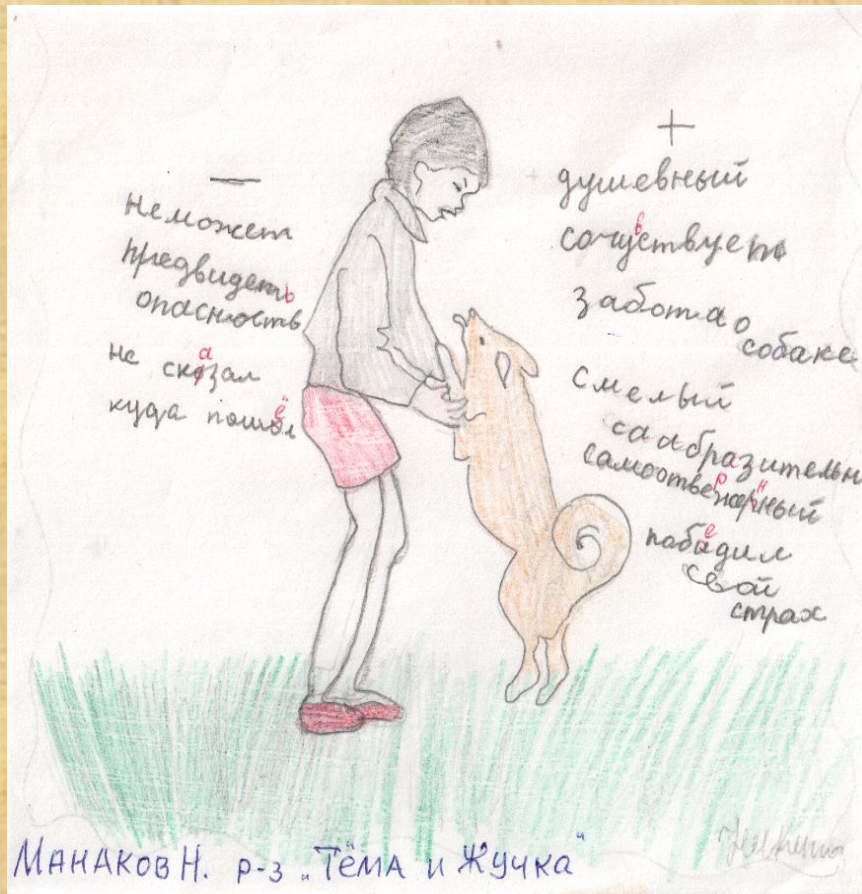 —
Неможет
предвидеть
опасность
не сказал
куда пошёл
+
душевный
сочувствует
забота о
собаке
смелый
саабразительн
самоотверженный
пабедил
свой
страх
Манаков Н. р-з „Тёма и Жучка"